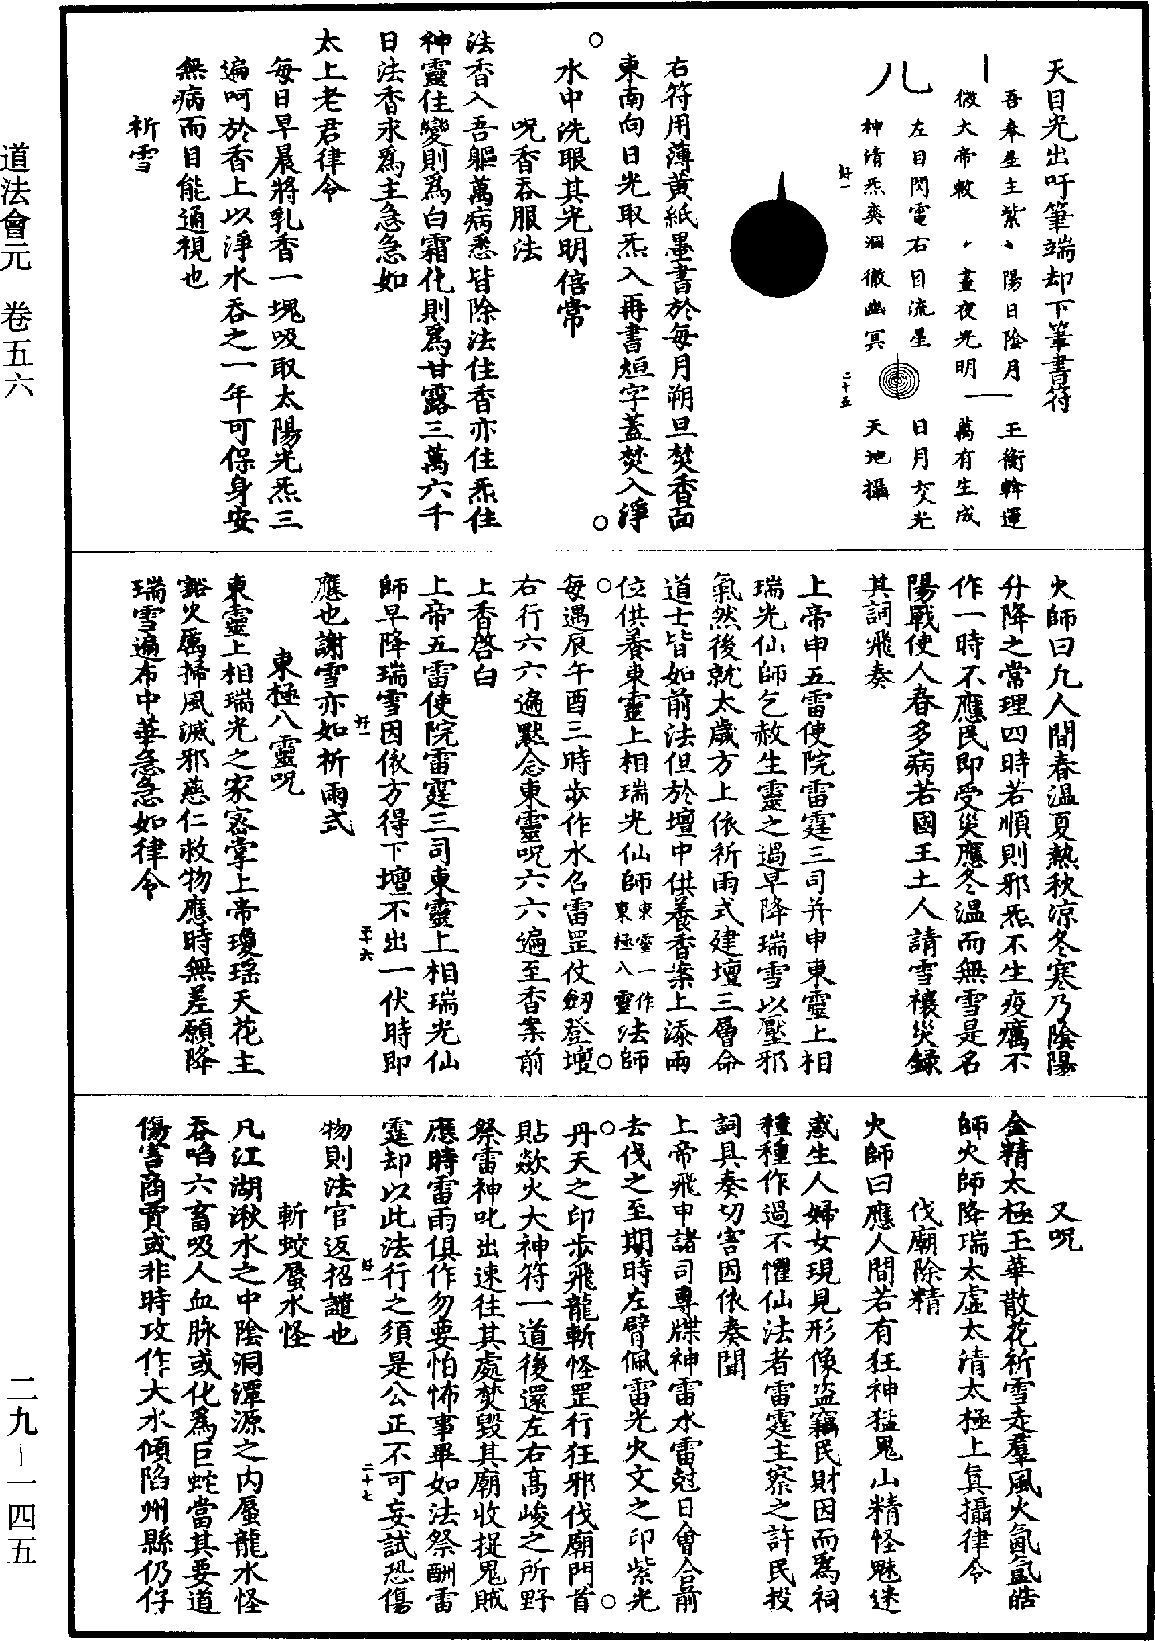 道法會元　卷五六
二九－一四五
天目光出吁筆端却下筆書符
吾奉星主紫 陽日陰月 玉衡斡運
微大帝敕 晝夜光明 萬有生成
左目閃電右目流星 日月交光
神清炁爽洞徹幽冥 天地攝
好一
二十五
右符用薄黃紙墨書於每月朔旦焚香面
東南向日光取炁入再書烜字蓋焚入淨
水中洗眼其光明倍常
呪香吞服法
法香入吾軀萬病悉皆除法住香亦住炁住
神靈住變則爲白霜化則爲甘露三萬六千
日法香永爲主急急如
太上老君律令
每日早晨將乳香一塊吸取太陽光炁三
遍呵於香上以淨水吞之一年可保身安
無病而目能通視也
祈雪
火師曰凡人間春溫夏熱秋涼冬寒乃陰陽
升降之常理四時若順則邪炁不生疫癘不
作一時不應民即受災應冬溫而無雪是名
陽戰使人春多病若國王土人請雪禳災錄
其詞飛奏
上帝申五雷使院雷霆三司并申東靈上相
瑞光仙師乞赦生靈之過早降瑞雪以壓邪
氣然後就太歲方上依祈雨式建壇三層命
道士皆如前法但於壇中供養香案上添兩
位供養東靈上相瑞光仙師東靈一作東極八靈法師
每遇辰午酉三時步作水名雷罡仗劒登壇
右行六六遍默念東靈呪六六遍至香案前
上香啓白
上帝五雷使院雷霆三司東靈上相瑞光仙
師早降瑞雪因依方得下壇不出一伏時即
好一
二十六
應也謝雪亦如祈雨式
東極八靈呪
東靈上相瑞光之家密掌上帝瓊瑤天花主
豁火厲掃風滅邪慈仁救物應時無差願降
瑞雪遍布中華急急如律令
又呪
金精太極玉華散花祈雪走羣風火氤氳皓
師火師降瑞太虛太清太極上眞攝律令
伐廟除精
火師曰應人間若有狂神猛鬼山精怪魅迷
惑生人婦女現見形像盜竊民財因而爲祠
種種作過不懼仙法者雷霆主察之許民投
詞具奏切害因依奏聞
上帝飛申諸司專牒神雷水雷尅日會合前
去伐之至期時左臂佩雷光火文之印紫光
丹天之印步飛龍斬怪罡行狂邪伐廟門首
貼歘火大神符一道後還左右高峻之所野
祭雷神叱出速往其處焚毀其廟收捉鬼賊
應時雷雨俱作勿要怕怖事畢如法祭酬雷
霆却以此法行之須是公正不可妄試恐傷
好一
二十七
物則法官返招譴也
斬蛟蜃水怪
凡江湖湫水之中陰洞潭源之內蜃龍水怪
吞啗六畜吸人血脉或化爲巨蛇當其要道
傷害商賈或非時攻作大水傾陷州縣仍仔